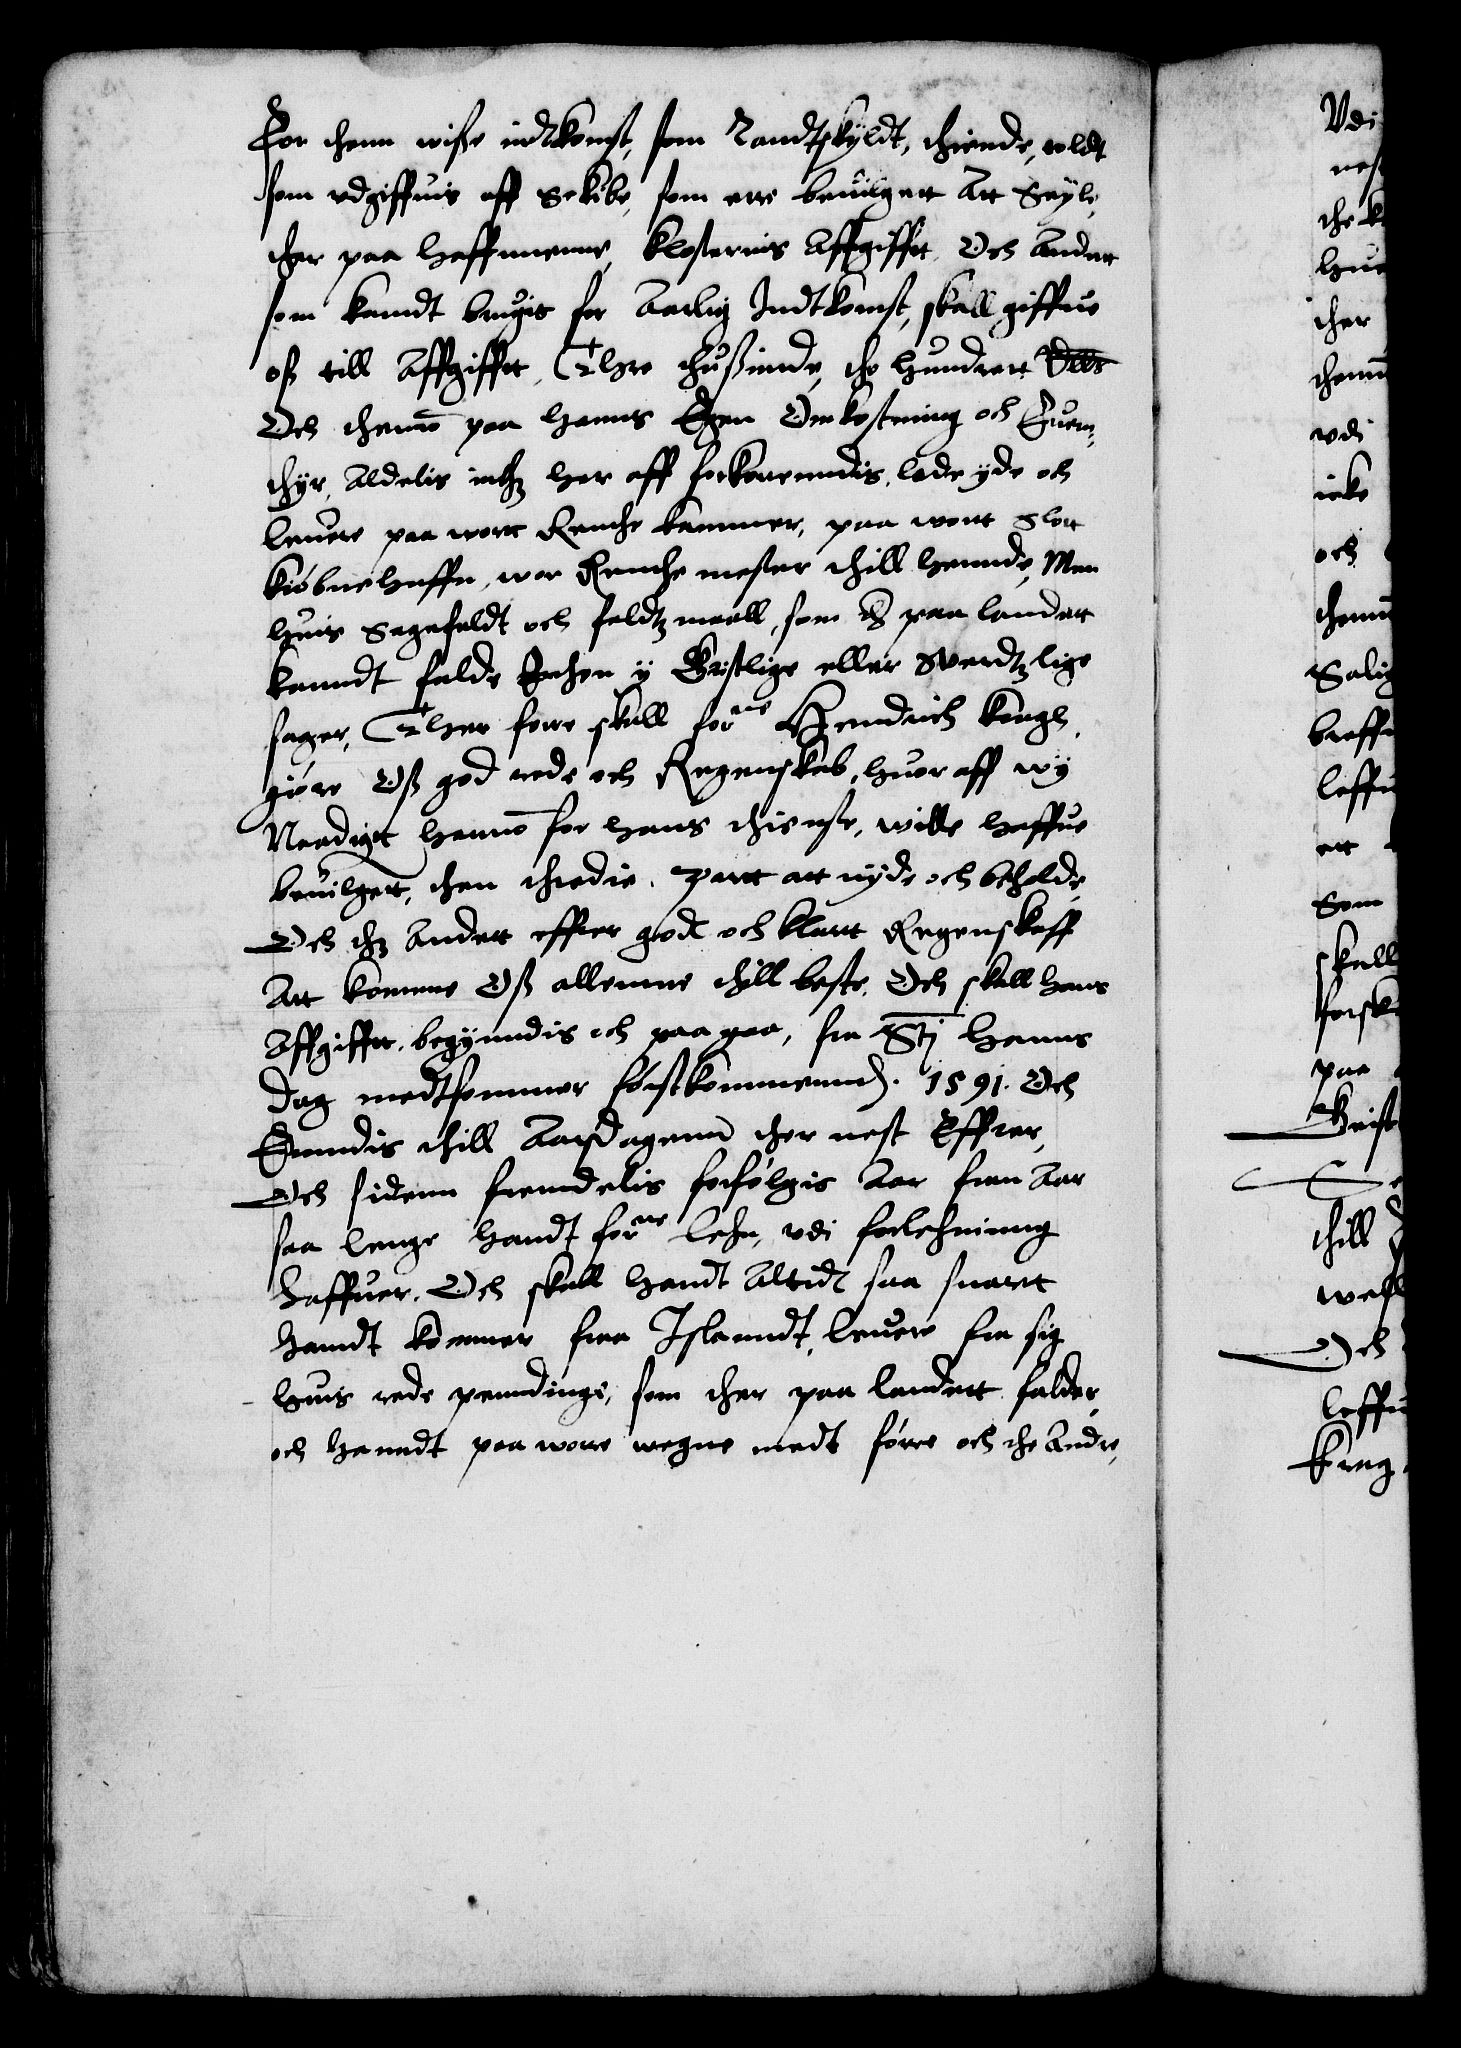 For thenn wisse indkomst, som Landtskyldt, thiende, toldt
som vdgiffuis aff Skibe, som ere beuilgett Att Seyle,
ther paa Haffnnerne, Klosternis Affgifft, Och Andett
som kandt bruges for Aarlig Indtkomst, skall giffue
oss till Affgifft, Thre thussinde, the hundrett
Och thennom paa hanns Egen Omkostning och Euen-
thyr, Aldelis inthz her aff forkortendis, lade yde och
leuere paa wort Renthe kammer, paa wort Slott
Kiøbnehaffn, wor Renthe mester thill hennde, Men
huis Sagefaldt och faldtz maall, som paa landet
kanndt falde Enthen y Geistlige eller Werdtzlige
sager, Ther fore skall forne Hendrich Kragh,
giøre Oss god rede och Regenskab, huor aff wy
Naadigt hannom for hans thieniste, wille haffue
beuilgett, then thredie part att nyde och beholde,
Och thz Andet effter god och klart Regenskaff
Att komme Oss allenne thill beste. Och skall hans
Affgifft begynndis och paa gaa, fra Stj Hanns
Dag medtsommer førstkommenndis 1591. Och
Enndis thill Aarsdagenn ther nest Effter,
Och sidenn fremdelis forfølgis Aar fran Aar
saa lenge handt forne Lehn, vdi forlehning
haffuer. Och skall handt Altidt saa snartt
handt kommer fraa Islanndt, leuere fra sig
huis rede penndinge, som ther paa landett falder,
och hanndt paa wore wegne medt førre och the Andre,
Vdi
Som
skall
paa
thill
Och